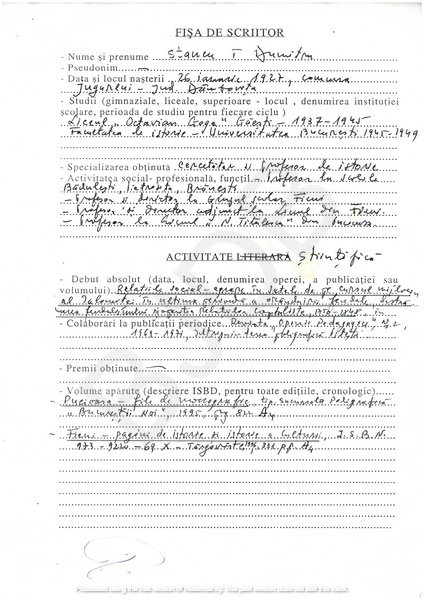 FIȘA DE SCRIITOR
- Nume și prenume Stancu T Dumitru
- Pseudonim —
- Data și locul nașterii 26 ianuarie 1927, comuna
- Jud. Dâmbovița
- Studii (gimnaziale, liceale, superioare - locul, denumirea instituției
școlare, perioada de studiu pentru fiecare ciclu)
Liceul "Octavian Goga" Găești - 1937-1945
Facultatea de istorie - Universitatea București 1945-1949
- Specializarea obținută Cercetător și profesor de istorie
- Activitatea social-profesională, funcții - Profesor la școlile
Bădulești, Brănești
- Profesor și director la Grupul școlar Fieni
- Profesor și Director adjunct la Liceul din Fieni
- Profesor la Liceul "N. Titulescu" din Pucioasa
ACTIVITATE LITERARĂ Științifică
- Debut absolut (data, locul, denumirea operei, a publicației sau
volumului) Relațiile social-agrare în satele de pe cursul mijlociu
al Ialomiței în ultima perioadă a orânduirii feudale,
- Colaborări la publicații periodice. Revista Nr. 2
1969-1971,
- Premii obținute —
- Volume apărute (descriere ISBD, pentru toate edițiile, cronologic)
Pucioasa - file de monografie, tip. Sucursala Poligrafică
"Bucureștii Noi", 1995, A4
- Fieni - pagini de istorie și istorie a culturii, I.S.B.N.
973-9220-69 X - Târgoviște A4